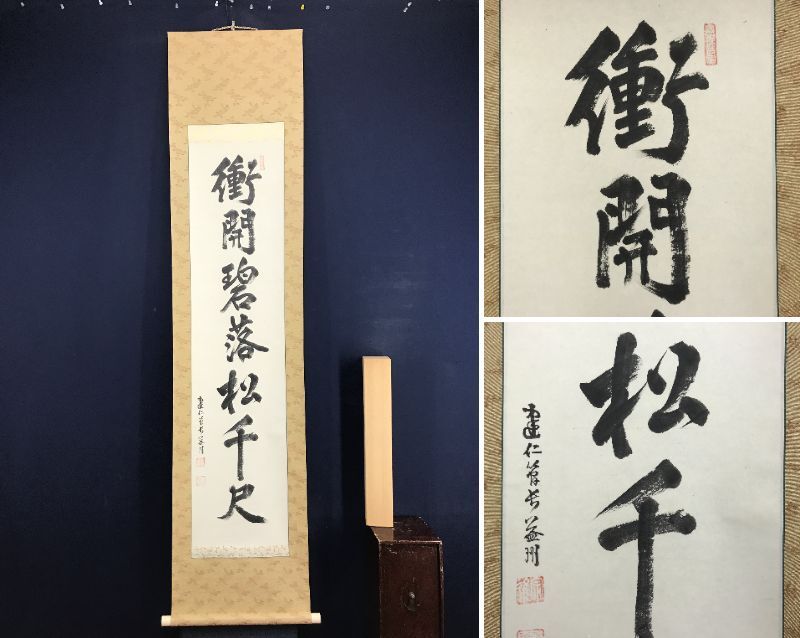 衝開碧落松千尺
建仁管長益州
衝開
松千
建仁管長益州